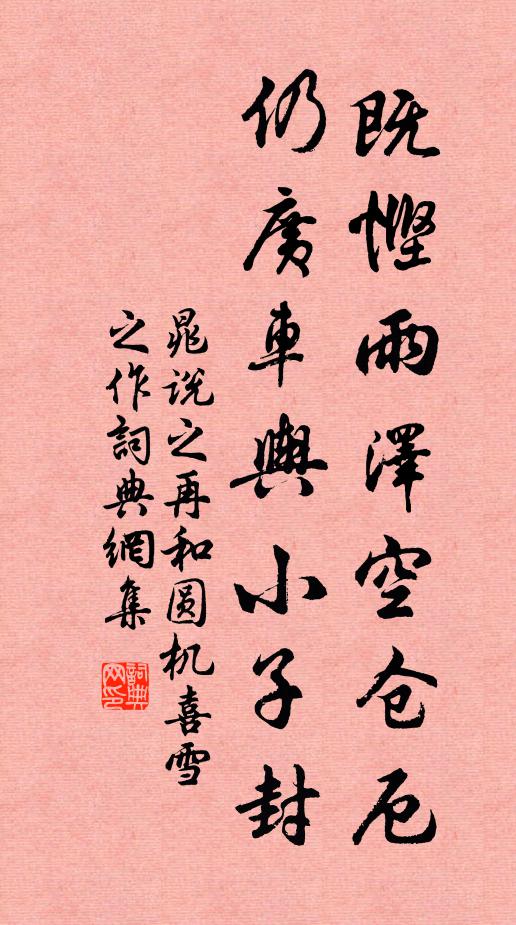 既慳雨澤空仓厄
仍廣車輿小子封
晁说之再和圆机喜雪
之作詞典網集
詞典
网印